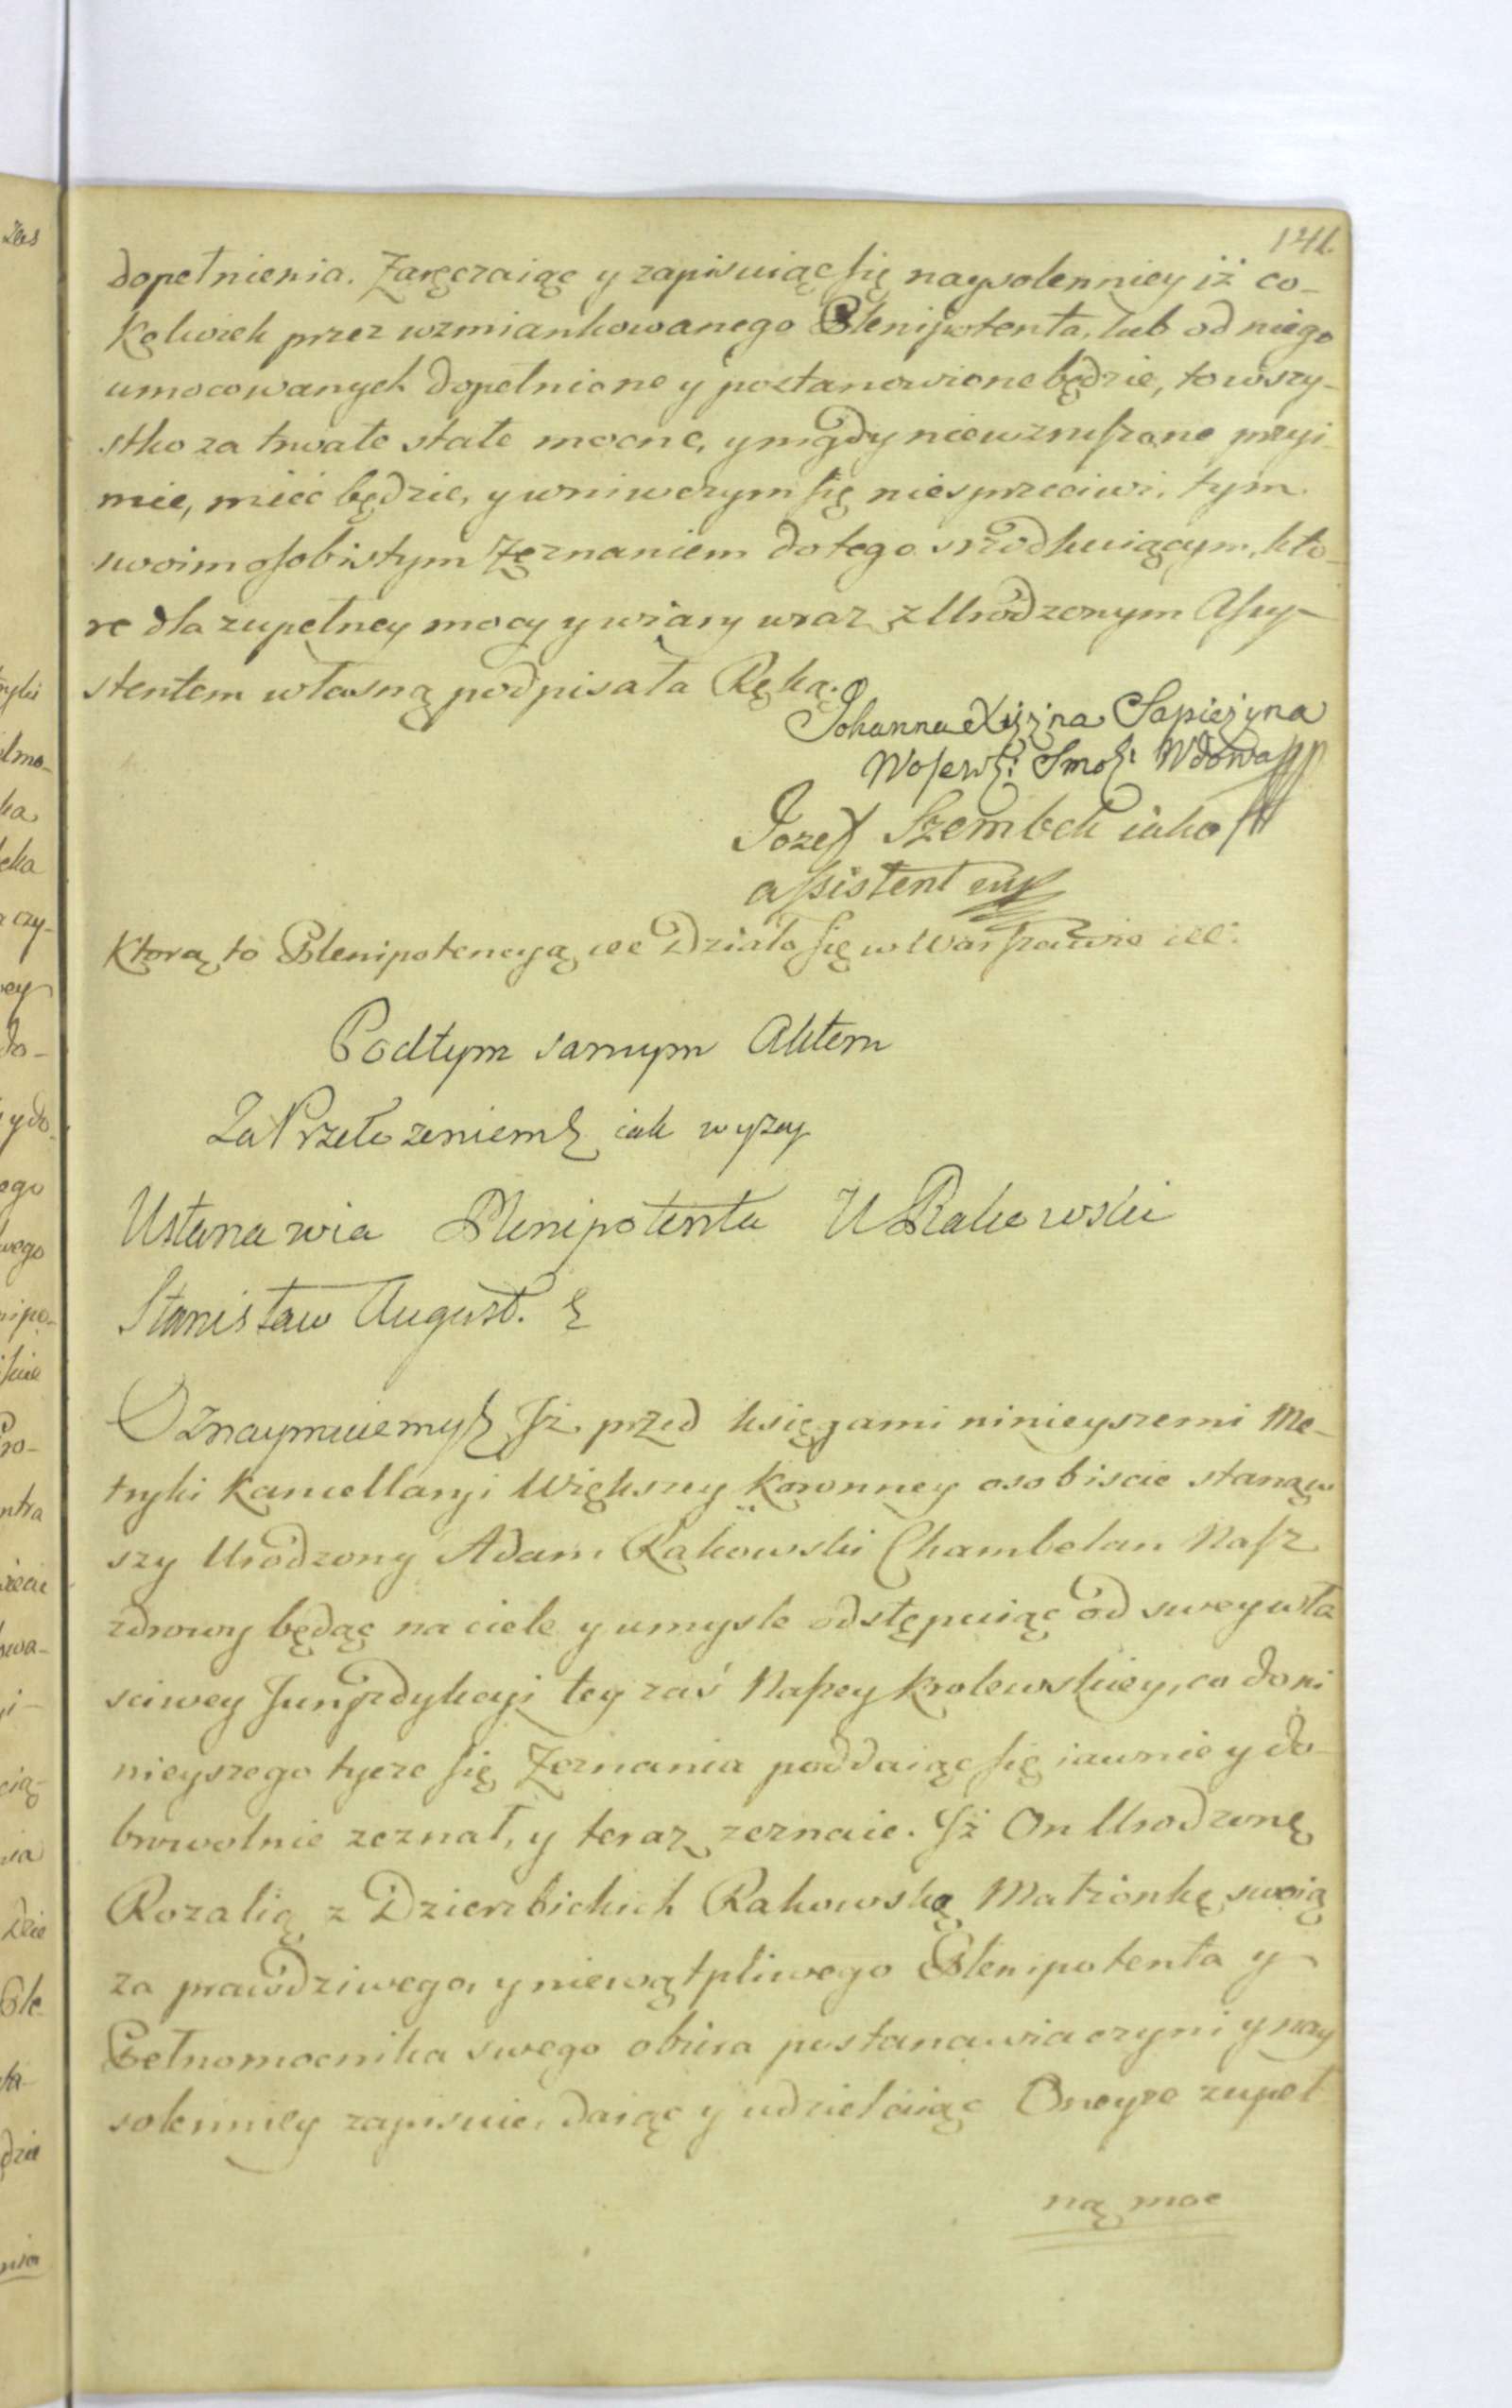 141.
dopełnienia. Zaręczaiąc y zapisuiąc się naysolenniey iż co-
kolwiek przez wzmiankowanego Plenipotenta, lub od niego
umocowanych dopełnione y postanowione będzie, to wszy-
stko za trwałe stałe mocne, y nigdy niewzruszone przyi-
mie, mieć będzie, y wniwczym się niesprzeciwi. tym
swoim osobistym Zeznaniem do tego srzodkuiącym, kto-
re dla zupełney mocy y wiary wraz z Urodzonym Assy-
stentem własną podpisała Ręką.
Johanna Xiężna Sapieżyna
Wojewz: Smol: Wdowa mpp
Jozef Szembek iako
assistent mp
Ktorą to Plenipotencyą etc Działo się w Warszawie etc:
Pod tym samym Aktem
Za Przełożeniem & iak wyszy
Ustanawia Plenipotenta U Rakowski
Stanisław August. &
Oznaymuiemy & Jż przed księgami ninieyszemi Me-
tryki Kancellaryi Większey Koronney osobiscie stanąw
szy Urodzony Adam Rakowski Chambelan Nasz
zdrowy będąc na ciele y umysle odstępuiąc od swey wła
sciwey Juryzdykcyi tey zaś Naszey Krolewskiey, co do ni
nieyszego tycze się Zeznania poddaiąc się iawnie y do-
browolnie zeznał, y teraz zeznaie. Jż On Urodzoną
Rozalią z Dzierzbickich Rakowską Małżonkę swoią
za prawdziwego, y niewątpliwego Plenipotenta y
Pełnomocnika swego obiera postanawia czyni y nay
solenniey zapisuie, daiąc y udzielaiąc Oneyże zupeł
ną moc